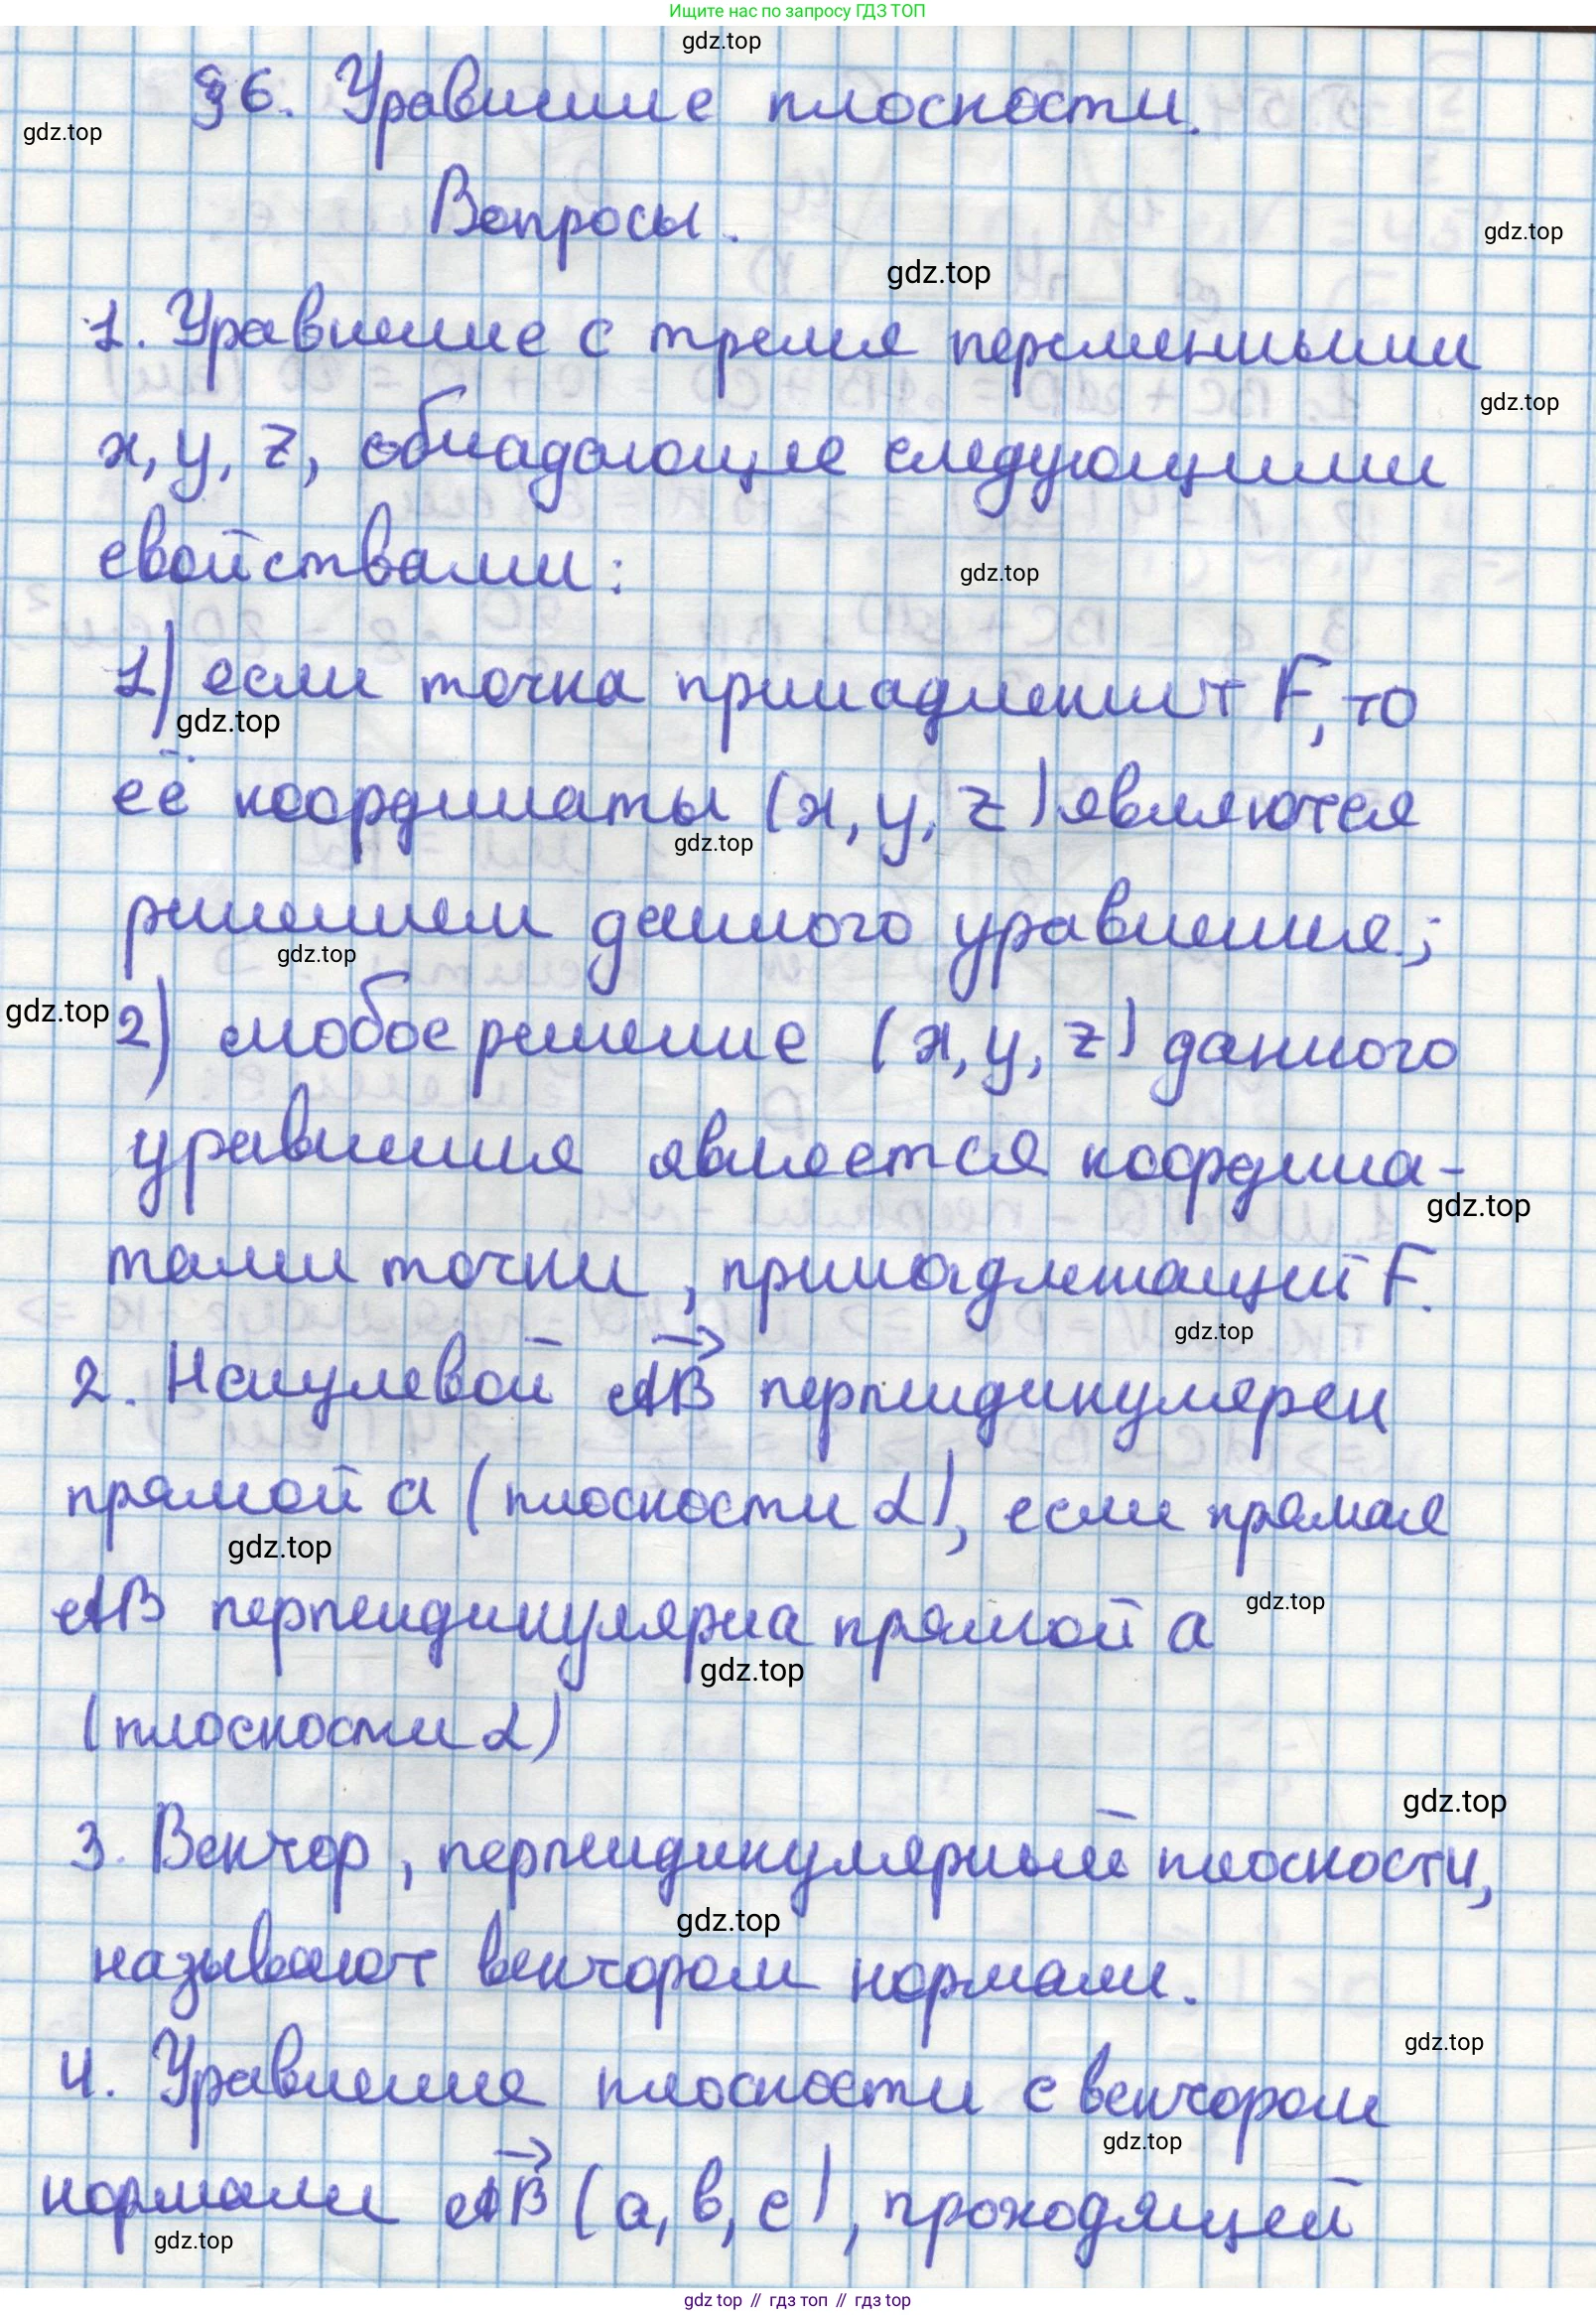 Ищите нас по запросу ГДЗ ТОП
gdz.top
§6. Уравнение плоскости.
gdz.top
Вопросы.
gdz.top
gdz.top
1. Уравнение с тремя переменными
gdz.top
x, y, z, обладающее следующими
свойствами:
gdz.top
1) если точка принадлежит F, то
gdz.top
её координаты (x, y, z) являются
gdz.top
решением данного уравнения;
gdz.top
gdz.top
2) любое решение (x, y, z) данного
уравнения является координа-
gdz.top
тами точки, принадлежащий F.
gdz.top
2. Ненулевой AB перпендикулярен
прямой a (плоскости α), если прямая
gdz.top
AB перпендикулярна прямой a
gdz.top
gdz.top
(плоскости α)
gdz.top
3. Вектор, перпендикулярный плоскости,
gdz.top
называют вектором нормали.
gdz.top
4. Уравнение плоскости с вектором
gdz.top
нормали AB (a, b, c), проходящей
gdz.top
gdz top // гдз топ // gdz top